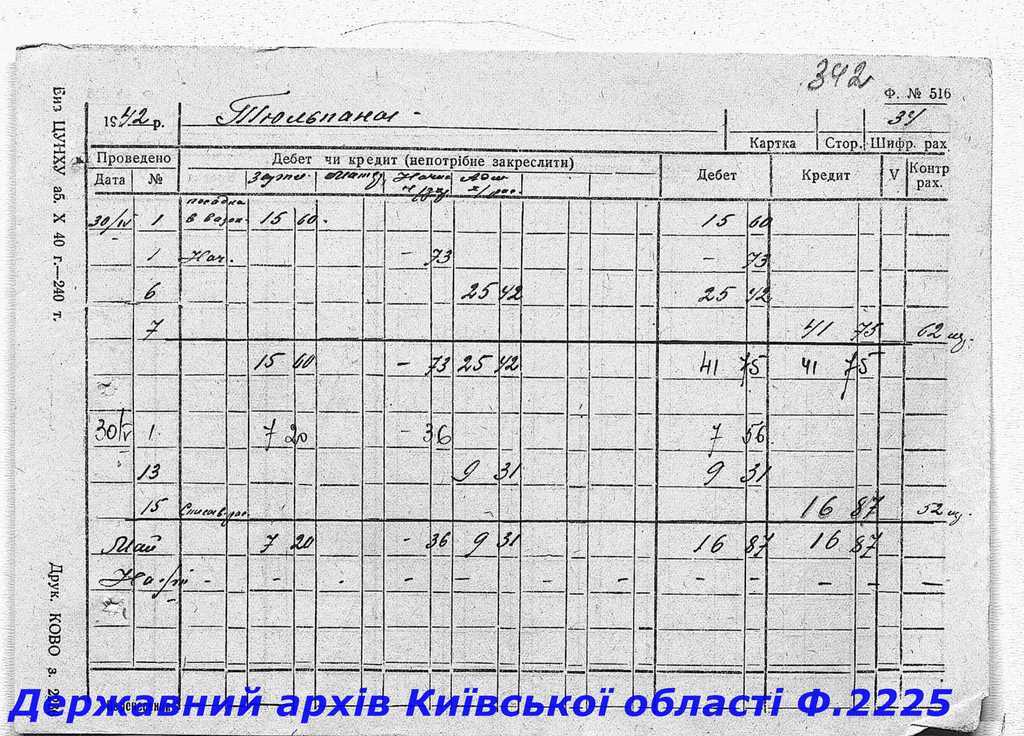 342
Ф. № 516
1942 р. Тюльпана 34
Картка Стор. Шифр. рах
Проведено Дебет чи кредит (непотрібне закреслити) Дебет Кредит V Контр рах.
Дата №
30/IV 1 посадка в вазон. 15 60 15 60
1 Нач. - 73 - 73
6 25 42 25 42
7 41 75 62
15 60 - 73 25 42 41 75 41 75
30/V 1 7 20 - 36 7 56
13 9 31 9 31
15 16 87 52
Май 7 20 - 36 9 31 16 87 16 87
- - - - - - - - - - - -
Виз ЦУНХУ аб. X 40 г.—240 т.
Друк. КОВО з.
Державний архів Київської області Ф.2225